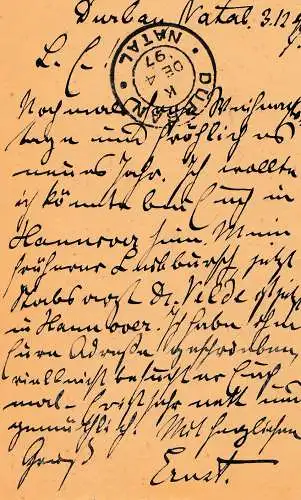 Durban Natal. 3.12.97
L. E.
DURBAN · NATAL
K
DE 4
97
Nochmals Weihnachts
tage und fröhliches
neues Jahr. Ich wollte
ich könnte bei Euch in
Hannover sein. Mein
früherer Leibbursch, jetzt
Stabsarzt Dr. Velde sitzt
in Hannover. Ich habe ihm
Eure Adresse geschrieben,
vielleicht besucht er Euch
mal – ist sehr nett und
gemüthlich. Mit herzlichem
Gruß
Ernst.